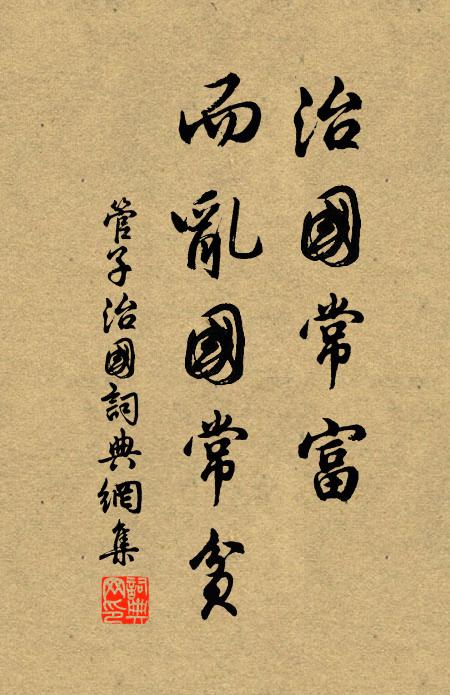 治國常富
而亂國常貧
管子治國詞典網集
詞典
网印